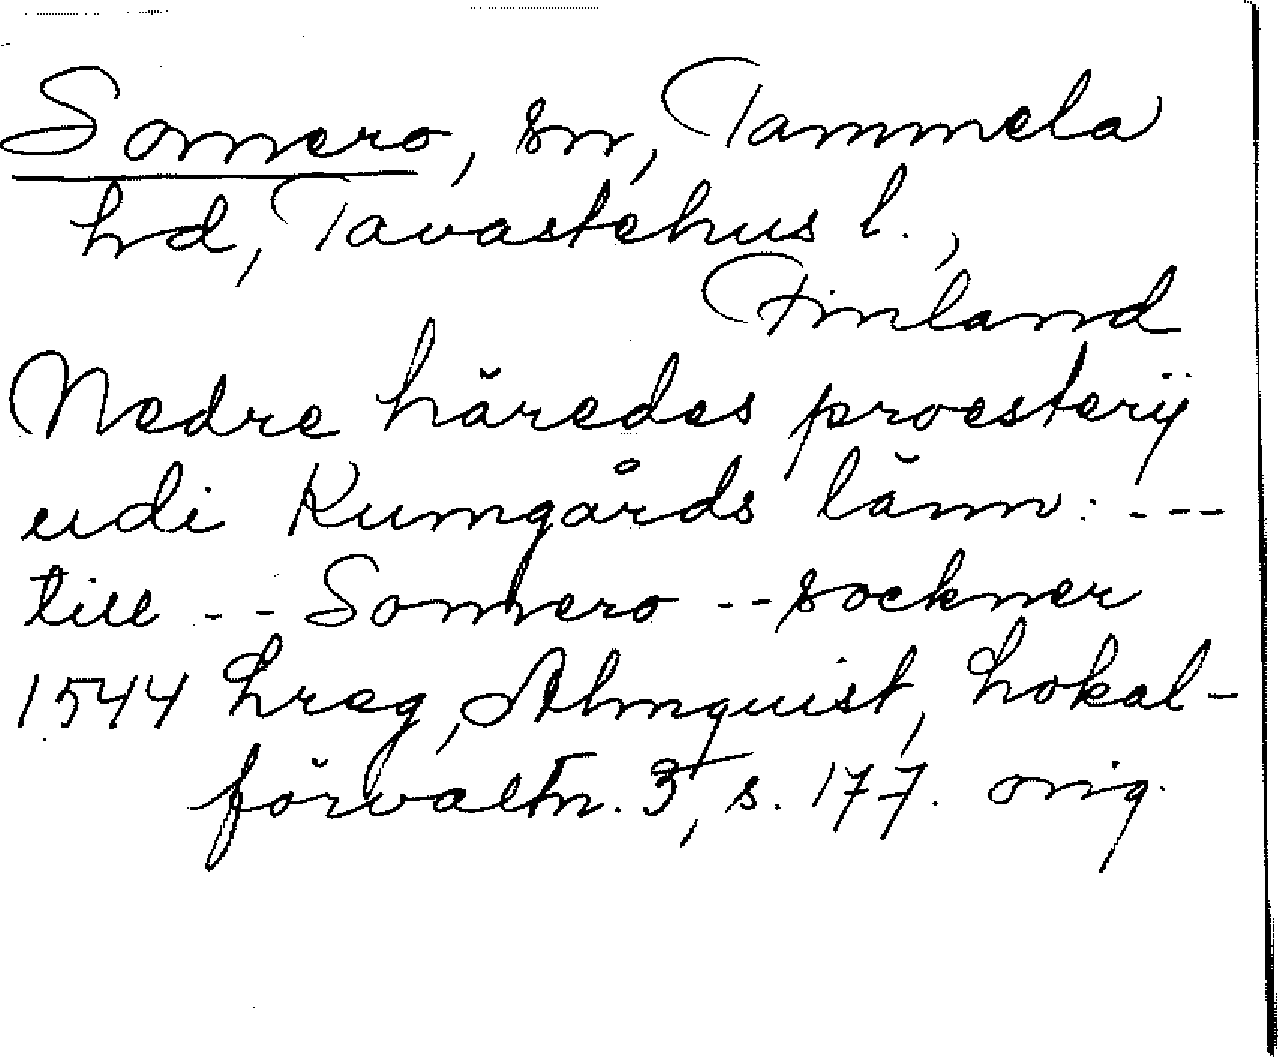 Somero, sn, Tammela
hd, Tavastehus l.,
Finland
Nedre häredes proesterij
udi Kumgårds länn: ---
till -- Somero -- sockner
1544 Lreg, Almquist, Lokal-
förvaltn. 3, s. 177. orig.